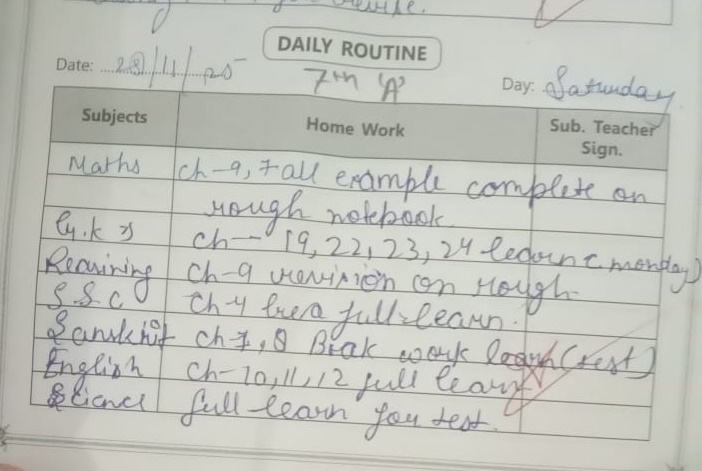 DAILY ROUTINE
Date: 29/11/25
7th 'A'
Day: Saturday
Subjects Home Work Sub. Teacher Sign.
Maths ch-9, 7 all example complete on
rough notebook
G.k ch- 19, 22, 23, 24 learn (monday)
Reasining ch-9 revision on rough
S.S.C ch-4 full learn.
Sanskrit ch 7, 8 work learn (test)
English ch-10, 11, 12 full learn
Science full learn for test.